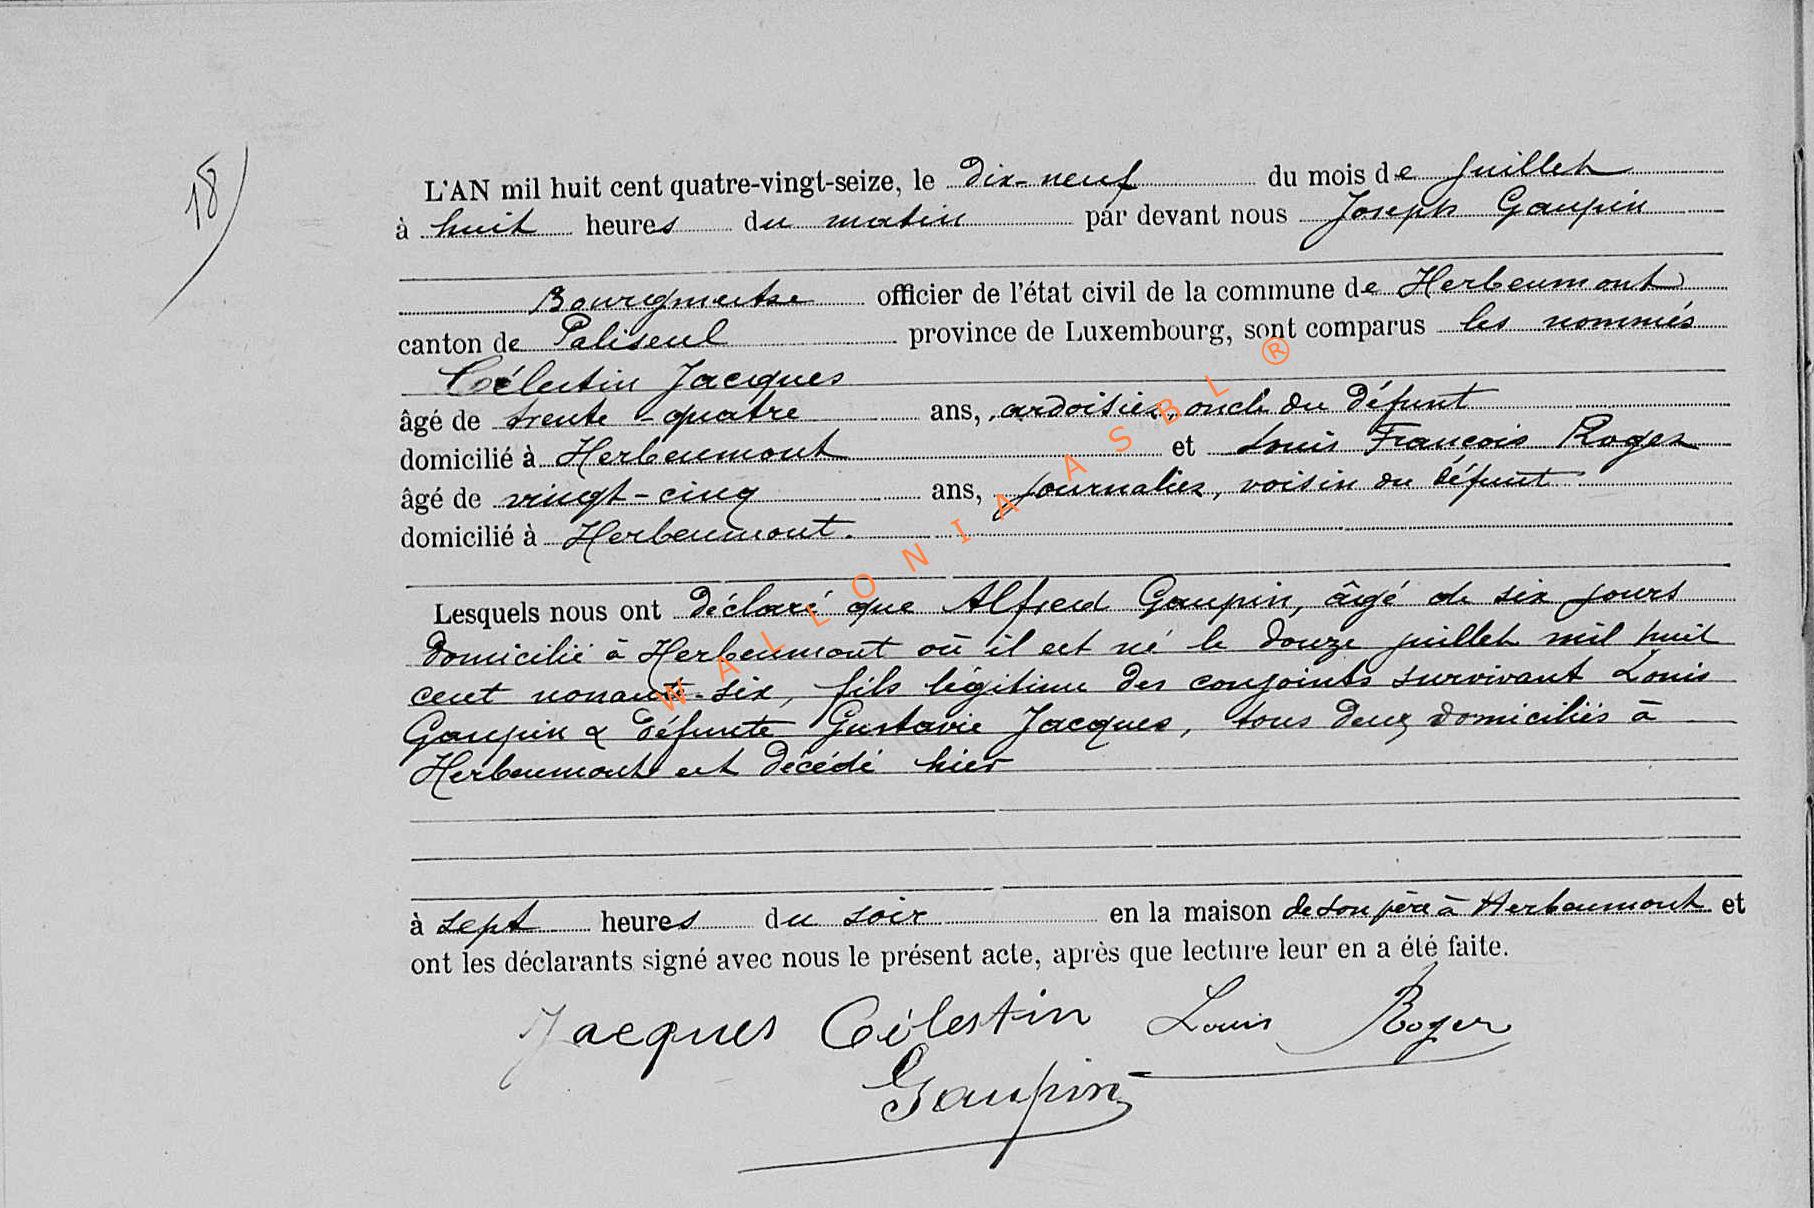 18)
L'AN mil huit cent quatre-vingt-seize, le dix-neuf du mois de juillet
à huit heures du matin par devant nous Joseph Gaupin
Bourgmestre officier de l'état civil de la commune de Herbeumont
canton de Paliseul province de Luxembourg, sont comparus les nommés
Célestin Jacques
âgé de trente-quatre ans, ardoisier, oncle du défunt
domicilié à Herbeumont et Louis François Roger
âgé de vingt-cinq ans, journalier, voisin du défunt
domicilié à Herbeumont.
Lesquels nous ont déclaré que Alfred Gaupin, âgé de six jours
domicilié à Herbeumont où il est né le douze juillet mil huit
cent nonante-six, fils légitime des conjoints survivant Louis
Gaupin & défunte Gustavie Jacques, tous deux domiciliés à
Herbeumont est décédé hier
à sept heures du soir en la maison de son père à Herbeumont et
ont les déclarants signé avec nous le présent acte, après que lecture leur en a été faite.
Jacques Célestin Louis Roger
Gaupin
WALLONIA ASBL ®